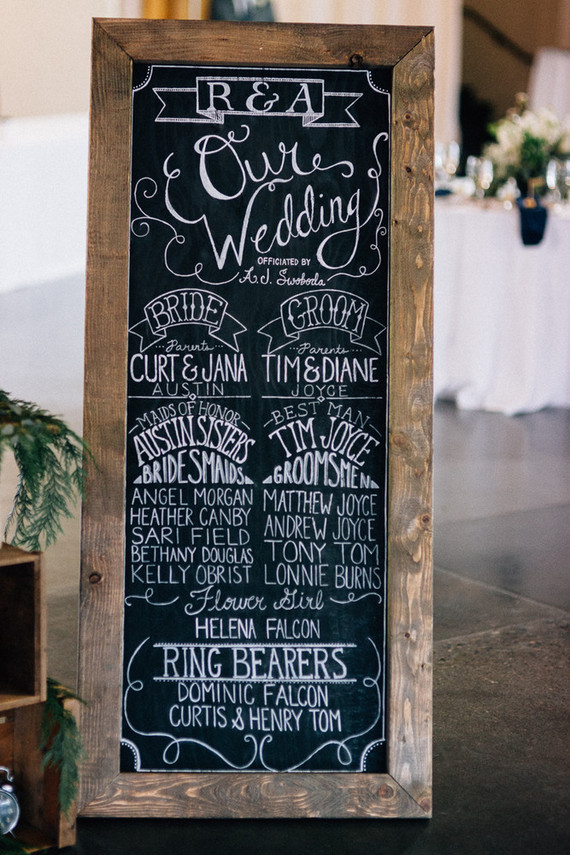 R & A
Our
Wedding
OFFICIATED BY
A.J. Swoboda
BRIDE
Parents
CURT & JANA
AUSTIN
MAIDS OF HONOR
AUSTIN SISTERS
BRIDESMAIDS
ANGEL MORGAN
HEATHER CANBY
SARI FIELD
BETHANY DOUGLAS
KELLY OBRIST
GROOM
Parents
TIM & DIANE
JOYCE
BEST MAN
TIM JOYCE
GROOMSMEN
MATTHEW JOYCE
ANDREW JOYCE
TONY TOM
LONNIE BURNS
Flower Girl
HELENA FALCON
RING BEARERS
DOMINIC FALCON
CURTIS & HENRY TOM